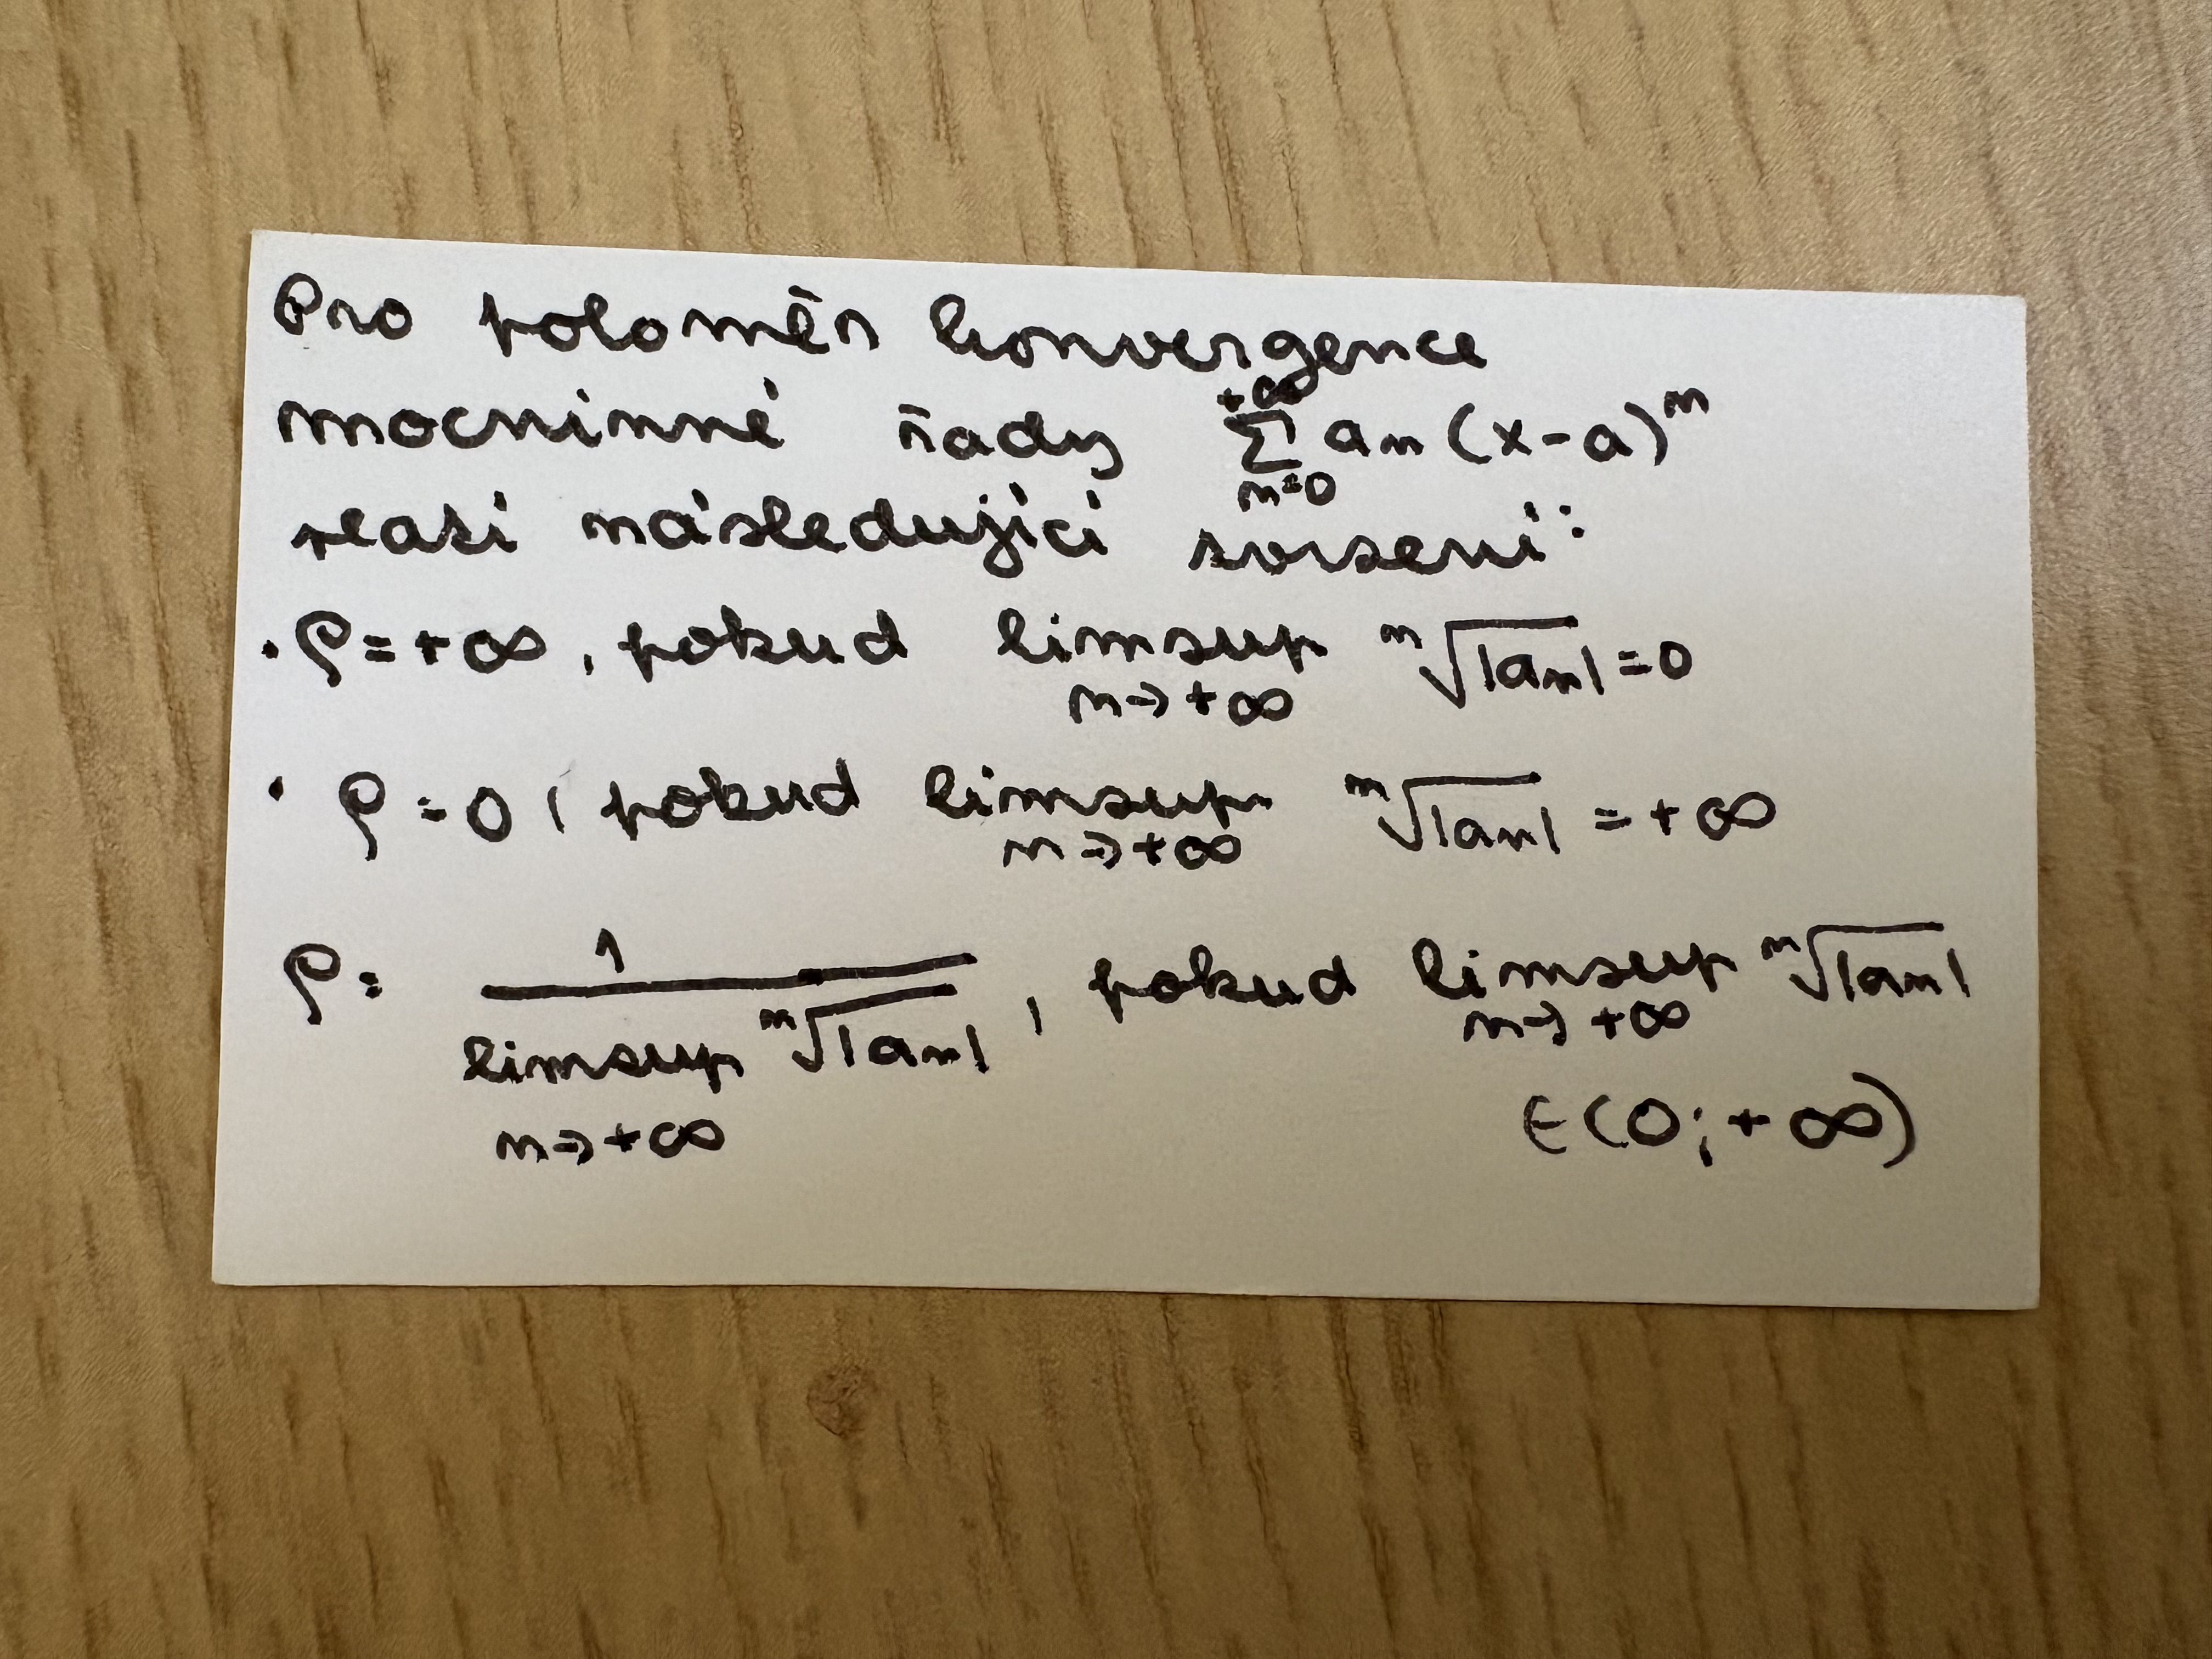 Pro poloměr konvergence
mocninné řady $\sum_{n=0}^{+\infty} a_n (x-a)^n$
platí následující tvrzení:
· $\rho = +\infty$, pokud $\limsup_{n \to +\infty} \sqrt[n]{|a_n|} = 0$
· $\rho = 0$, pokud $\limsup_{n \to +\infty} \sqrt[n]{|a_n|} = +\infty$
$\rho = \frac{1}{\limsup_{n \to +\infty} \sqrt[n]{|a_n|}}$, pokud $\limsup_{n \to +\infty} \sqrt[n]{|a_n|}$
$\in (0; +\infty)$